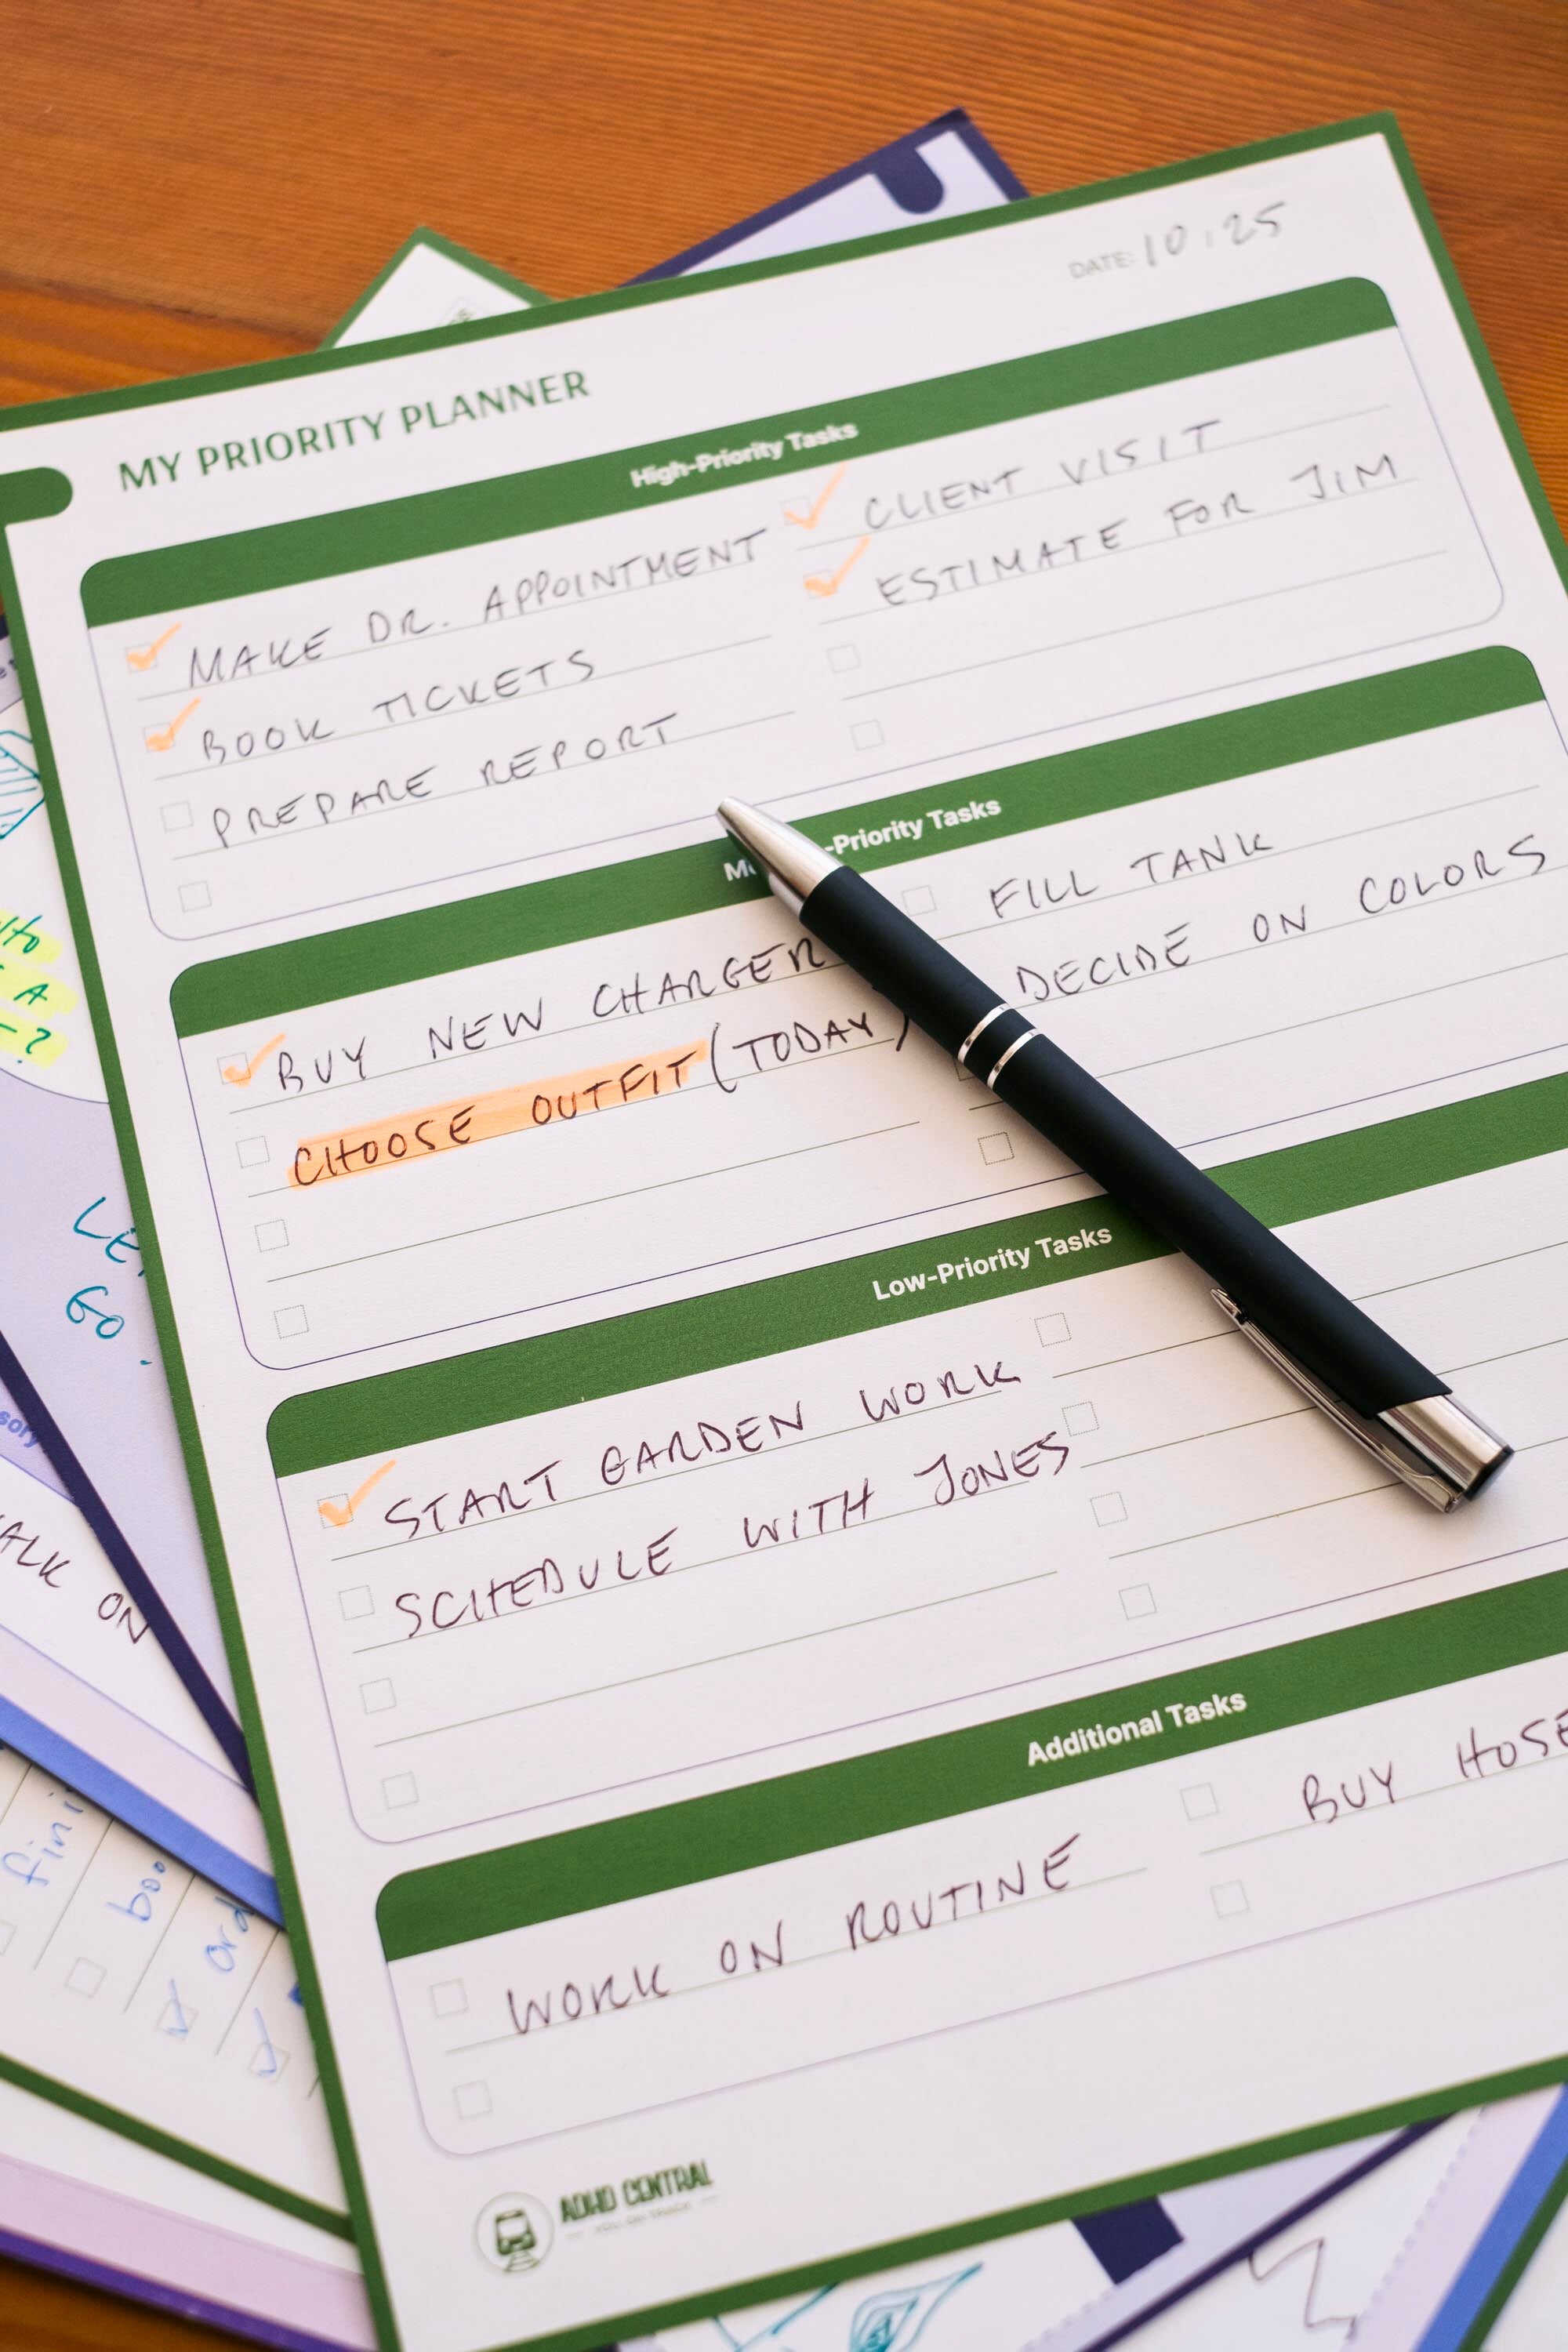 DATE: 10.25
MY PRIORITY PLANNER
High-Priority Tasks
MAKE DR. APPOINTMENT
BOOK TICKETS
PREPARE REPORT
CLIENT VISIT
ESTIMATE FOR JIM
-Priority Tasks
BUY NEW CHARGER
CHOOSE OUTFIT (TODAY)
FILL TANK
DECIDE ON COLORS
Low-Priority Tasks
START GARDEN WORK
SCHEDULE WITH JONES
Additional Tasks
WORK ON ROUTINE
BUY HOSE
ADHD CENTRAL
A
?
GO.
ON